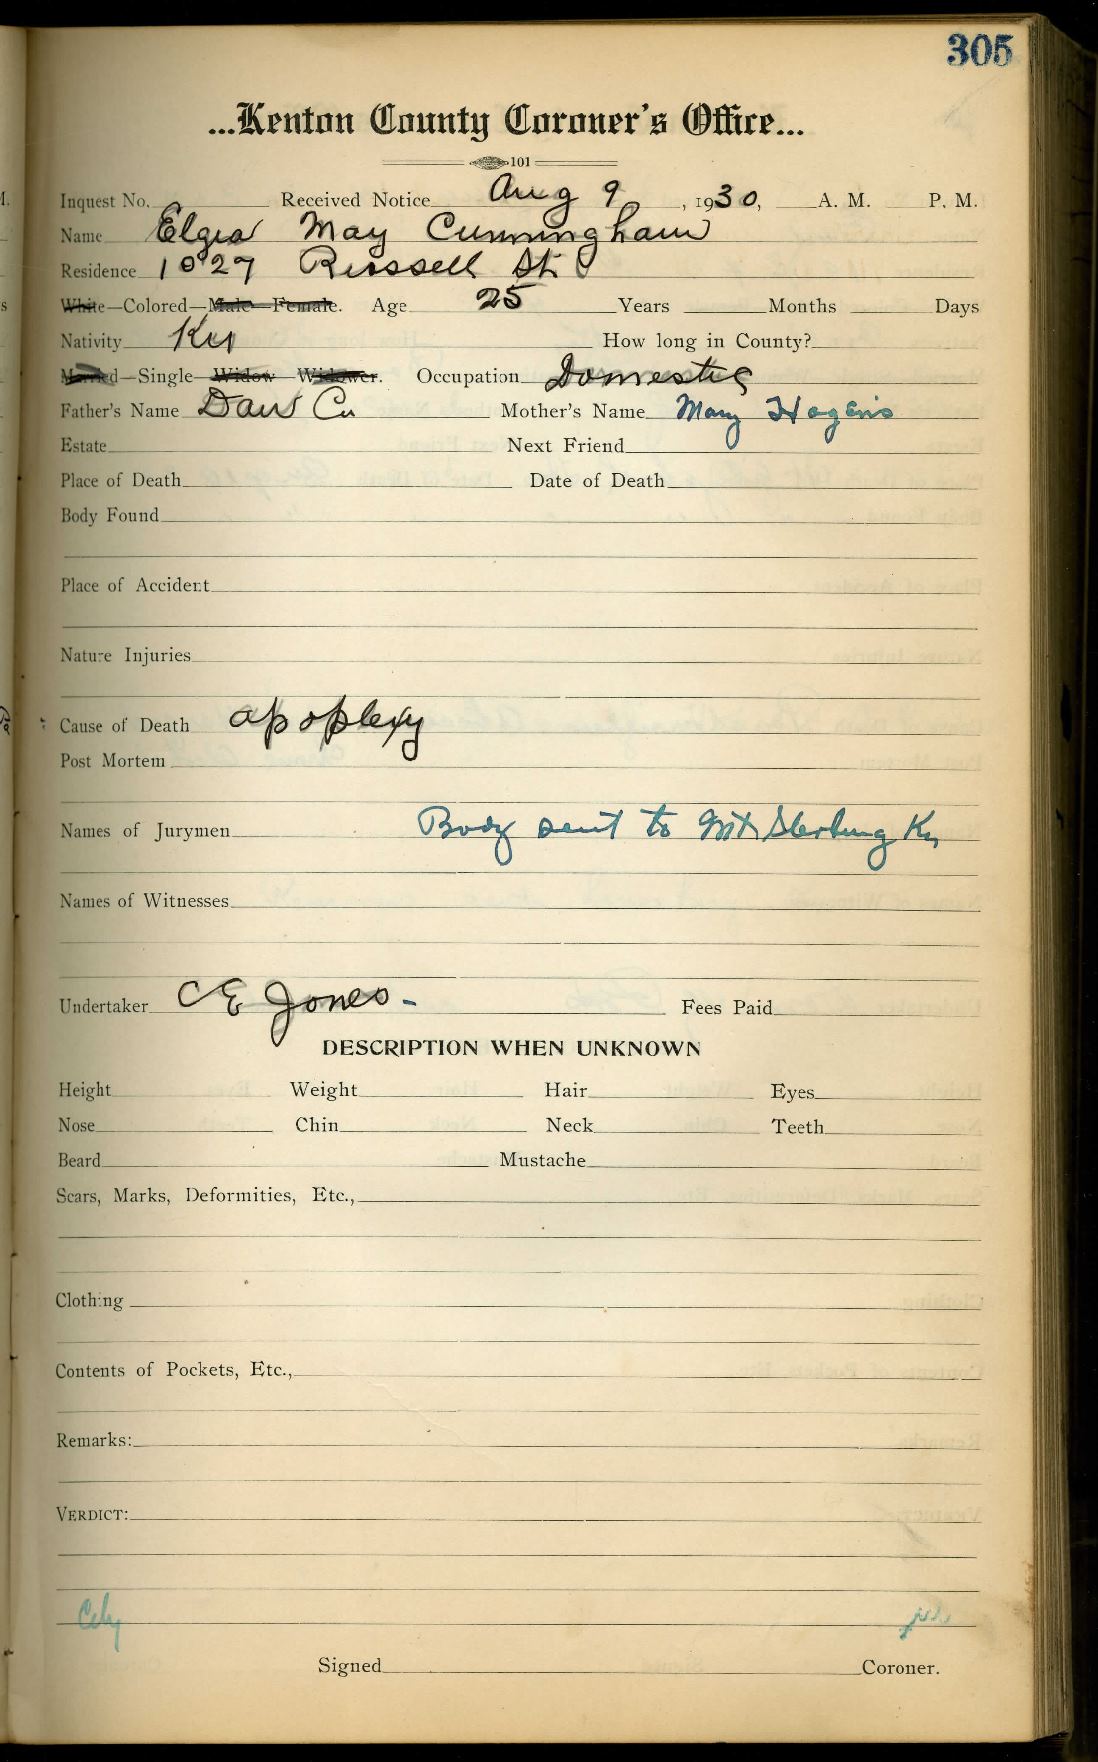 305
...Kenton County Coroner's Office...
101
Inquest No. Received Notice Aug 9, 1930, A. M. P. M.
Name Elgia May Cunningham
Residence 1027 Russell St.
White—Colored—Male—Female. Age 25 Years Months Days
Nativity Ky How long in County?
Married—Single—Widow—Widower. Occupation Domestic
Father's Name Dan Cu Mother's Name Mary Hagins
Estate Next Friend
Place of Death Date of Death
Body Found
Place of Accident
Nature Injuries
Cause of Death apoplexy
Post Mortem
Names of Jurymen Body sent to Mt Sterling Ky
Names of Witnesses
Undertaker C E Jones - Fees Paid
DESCRIPTION WHEN UNKNOWN
Height Weight Hair Eyes
Nose Chin Neck Teeth
Beard Mustache
Scars, Marks, Deformities, Etc.,
Clothing
Contents of Pockets, Etc.,
Remarks:
VERDICT:
City
Signed Coroner.